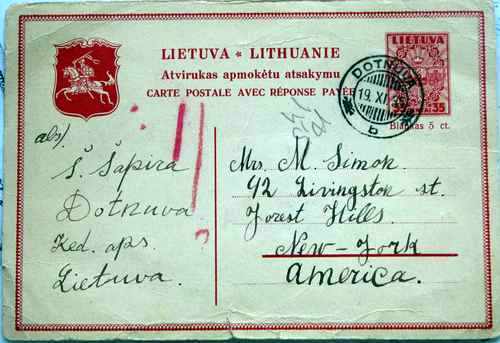 LIETUVA * LITHUANIE
Atvirukas apmokėtu atsakymu
CARTE POSTALE AVEC RÉPONSE PAYÉE
LIETUVA
35 35
Blankas 5 ct.
DOTNUVA
19. XI. 35
b
als)
Š. Šapira
Dotnuva
Ked. aps.
Lietuva.
Mrs. M. Simon.
92 Livingston st.
Forest Hills.
New-York
America.